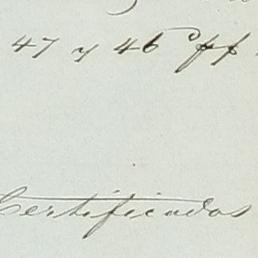 47 y 46 ff
Certificados